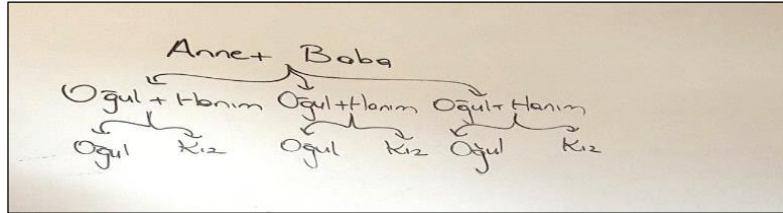 Anne+ Baba
Oğul + Hanım Oğul+Hanım Oğul+Hanım
Oğul Kız Oğul Kız Oğul Kız